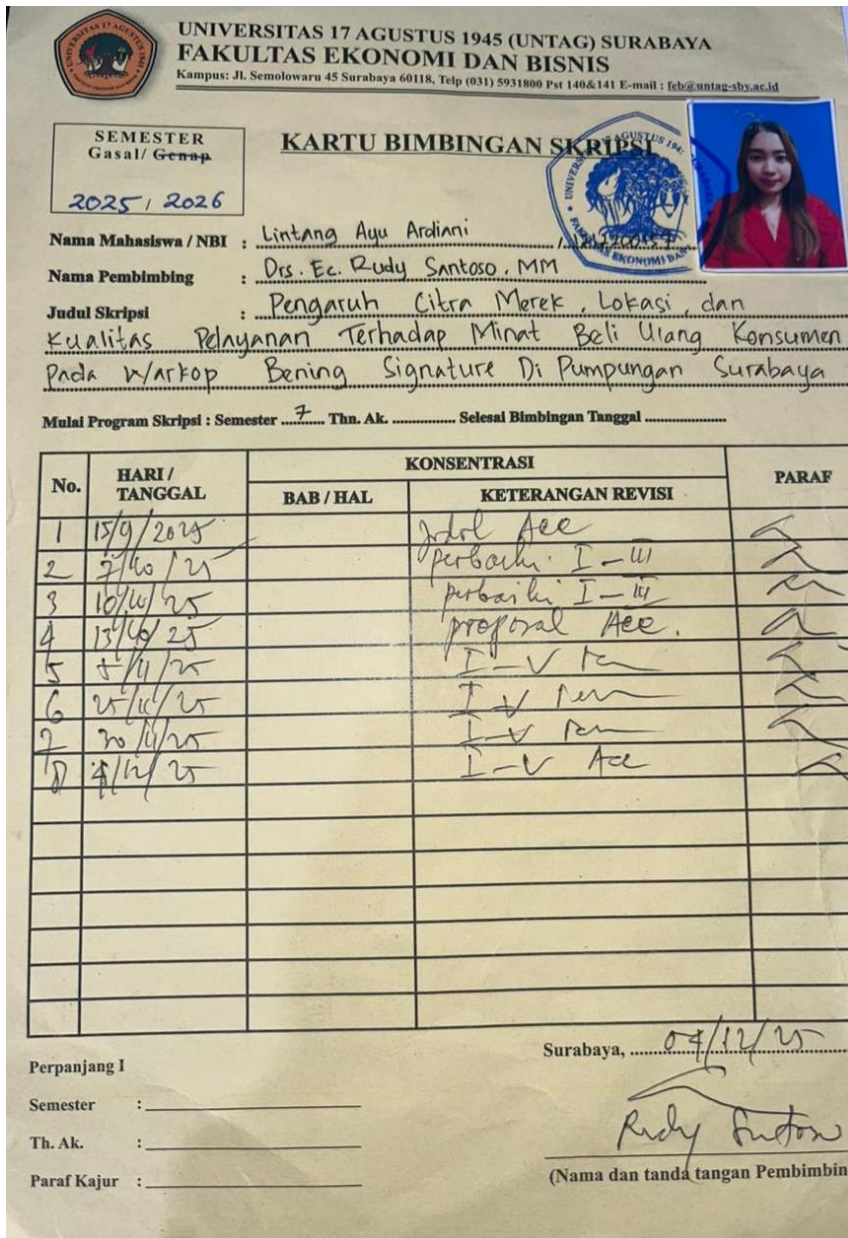 UNIVERSITAS 17 AGUSTUS 1945 (UNTAG) SURABAYA
FAKULTAS EKONOMI DAN BISNIS
Kampus: Jl. Semolowaru 45 Surabaya 60118, Telp (031) 5931800 Pst 140&141 E-mail : feb@untag-sby.ac.id
SEMESTER
Gasal/ Genap
2025 / 2026
KARTU BIMBINGAN SKRIPSI
Nama Mahasiswa / NBI : Lintang Ayu Ardiani /
Nama Pembimbing : Drs. Ec. Rudy Santoso, MM
Judul Skripsi : Pengaruh Citra Merek, Lokasi, dan
Kualitas Pelayanan Terhadap Minat Beli Ulang Konsumen
Pada Warkop Bening Signature Di Pumpungan Surabaya
Mulai Program Skripsi : Semester 7 Thn. Ak. Selesai Bimbingan Tanggal
No. HARI / TANGGAL KONSENTRASI PARAF
BAB / HAL KETERANGAN REVISI
1 15/9/2025 Judul Acc
2 7/10/25 perbaiki I-III
3 10/10/25 perbaiki I-III
4 13/10/25 proposal Acc.
5 5/11/25 I-V
6 25/11/25 I-V
7 30/11/25 I-V
8 4/12/25 I-V Acc
Surabaya, 04/12/25
Perpanjang I
Semester :
Th. Ak. :
Paraf Kajur :
Rudy Santoso
(Nama dan tanda tangan Pembimbin